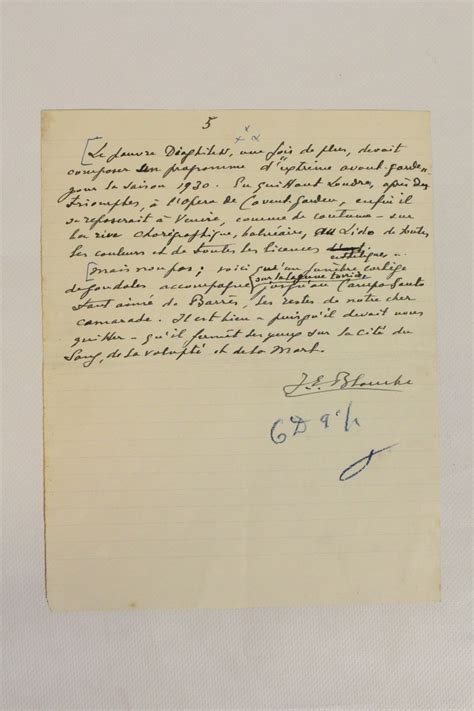 5
[Le pauvre Diaghilew, une fois de plus, devait
composer son programme d'"extrême avant-garde"
pour la saison 1930. En quittant Londres, après des
triomphes, à l'Opera de Covent-Garden, enfin il
se reposerait à Venise, comme de coutume - sur
la rive chorégraphique, balnéaire, au Lido de toutes
les couleurs et de toutes les licences esthétiques -
[Mais non pas; voici qu'un funèbre cortège
de gondoles accompagne, sur la lagune torride, jusqu'au Campo-Santo
tant aimé de Barrès, les restes de notre cher
camarade. Il est bien - puisqu'il devait nous
quitter - qu'il fermât les yeux sur la Cité du
Sang, de la Volupté et de la Mort.
J. E. Blanche